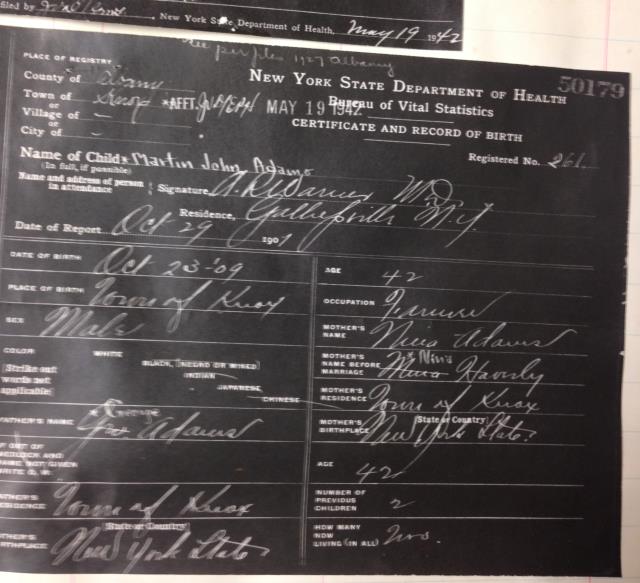 filed by
, New York State Department of Health, May 19 1942
see per files 1927 Albany
PLACE OF REGISTRY
County of Albany
Town of Knox
or
Village of -
or
City of -
*AFFT. MAY 19 1942
50179
NEW YORK STATE DEPARTMENT OF HEALTH
Bureau of Vital Statistics
CERTIFICATE AND RECORD OF BIRTH
Registered No. 261
Name of Child * Martin John Adams
(In full, if possible)
Name and address of person in attendance
Signature, M.D.
Residence, Gallupville N.Y.
Date of Report Oct 29 190
DATE OF BIRTH Oct 23-09
PLACE OF BIRTH Town of Knox
SEX Male
COLOR WHITE
BLACK, (NEGRO OR MIXED)
INDIAN
JAPANESE
CHINESE
(Strike out
words not
applicable)
* George
FATHER'S NAME Geo Adams
IF OUT OF
WEDLOCK AND
NAME NOT GIVEN
WRITE O. W.
FATHER'S
RESIDENCE Town of Knox
(State or Country)
FATHER'S
BIRTHPLACE New York State
AGE 42
OCCUPATION Farmer
MOTHER'S
NAME Nina Adams
* Nina
MOTHER'S
NAME BEFORE
MARRIAGE
MOTHER'S
RESIDENCE Town of Knox
(State or Country)
MOTHER'S
BIRTHPLACE New York State
AGE 42
NUMBER OF
PREVIOUS
CHILDREN 2
HOW MANY
NOW
LIVING (IN ALL) Two.